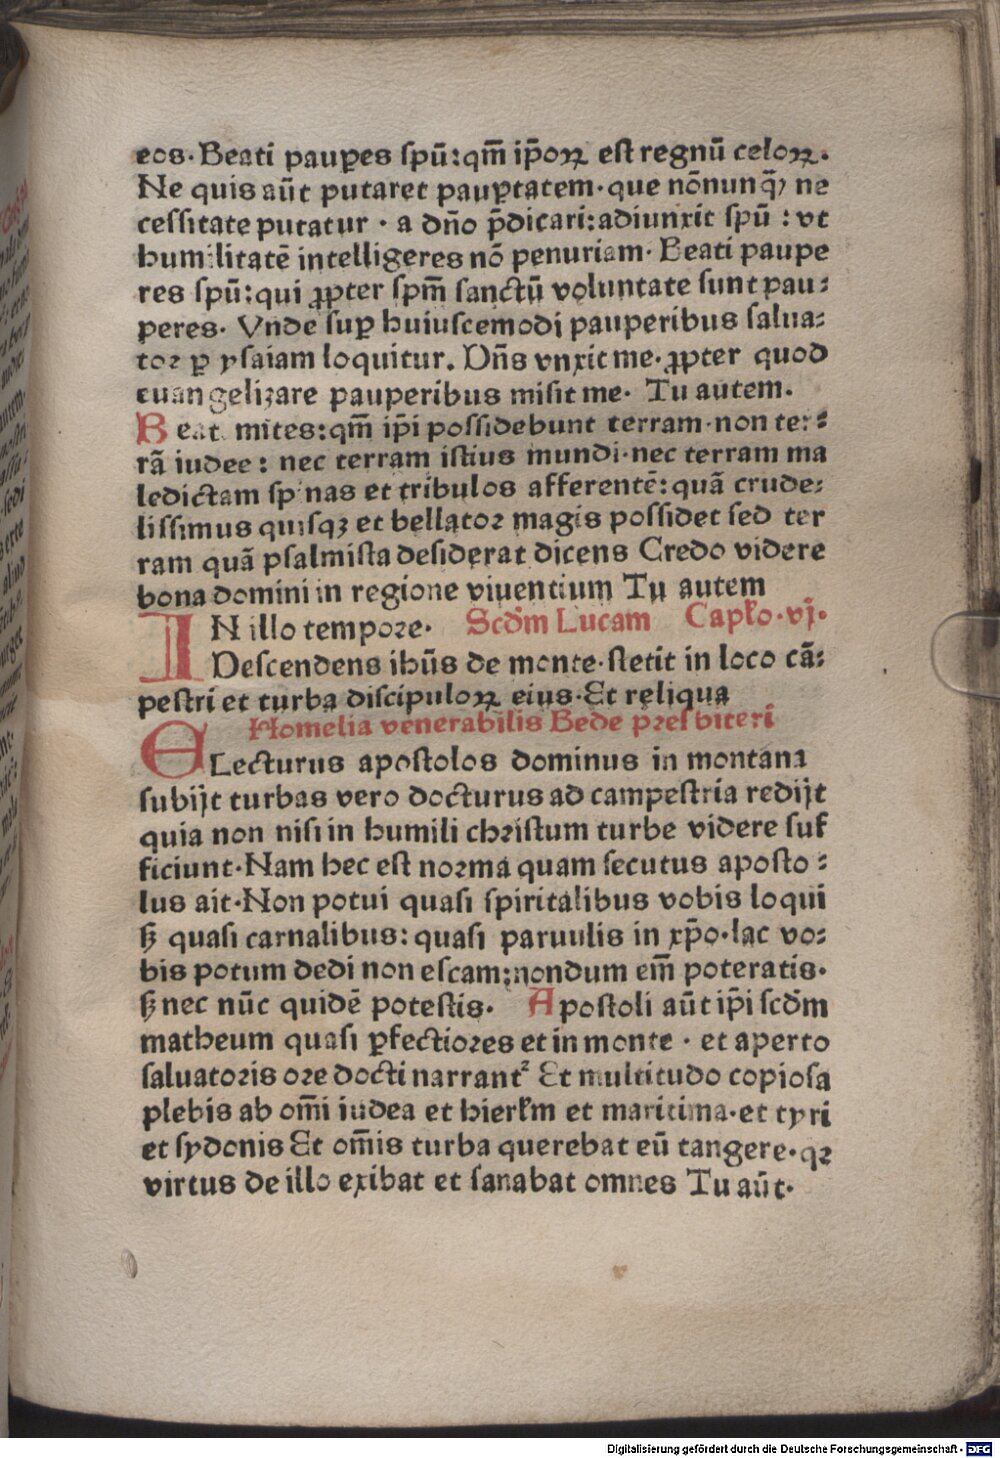 eos·Beati pauꝑes ſpū:qm̄ ip̄oꝝ eſt regnū celoꝝ.
Ne quis aūt putaret pauꝑtatem·que nōnunq̄ꝫ ne
ceſſitate putatur · a dn̄o p̄dicari:adiunxit ſpū : vt
humilitatē intelligeres nō penuriam· Beati paupe
res ſpū:qui ꝓpter ſpm̄ ſanctū voluntate ſunt pau:
peres· Vnde ſuꝑ huiuſcemodi pauperibus ſalua:
toꝛ ꝑ yſaiam loquitur. Dn̄s vnxit me·ꝓpter quod
euangelizare pauperibus miſit me· Tu autem.
Beati mites:qm̄ ip̄i poſſidebunt terram·non ter:
rā iudee: nec terram iſtius mundi·nec terram ma
ledictam ſpinas et tribulos afferentē:quā crude:
liſſimus quiſqꝫ et bellatoꝛ magis poſſidet ſed ter
ram quā pſalmiſta deſiderat dicens Credo videre
bona domini in regione viuentium Tu autem
IN illo tempoꝛe· Scd̄m Lucam Capł̄o·vj·
Deſcendens ihūs de monte·ſtetit in loco cā:
peſtri et turba diſcipuloꝝ eius·Et reliqua
Homelia venerabilis Bede preſbiteri
ELecturus apoſtolos dominus in montana
ſubijt turbas vero docturus ad campeſtria redijt
quia non niſi in humili chriſtum turbe videre ſuf
ficiunt·Nam hec eſt noꝛma quam ſecutus apoſto:
lus ait·Non potui quaſi ſpiritalibus vobis loqui
ꜩ quaſi carnalibus:quaſi paruulis in xp̄o·lac vo:
bis potum dedi non eſcam:nondum em̄ poteratis·
ꜩ nec nūc quidē poteſtis. Apoſtoli aūt ip̄i ſcd̄m
matheum quaſi ꝑfectioꝛes et in monte · et aperto
ſaluatoꝛis oꝛe docti narrantᷣ Et multitudo copioſa
plebis ab om̄i iudea et hierłm et maritima·et tyri
et ſydonis Et om̄is turba querebat eū tangere·qꝛ
virtus de illo exibat et ſanabat omnes Tu aūt·
Digitalisierung gefördert durch die Deutsche Forschungsgemeinschaft - DFG